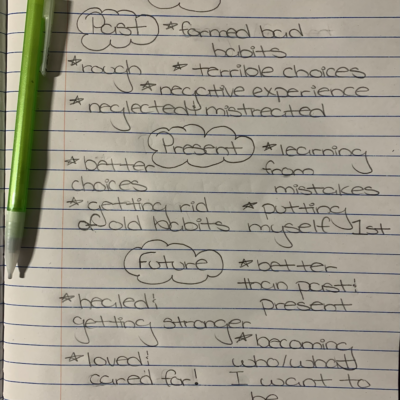 Past *formed bad
habits
*rough *terrible choices
*negative experience
*neglected & mistreated
Present *learning
*better from
choices mistakes
*getting rid *putting
of old habits myself 1st
Future *better
than past &
*healed & present
getting stronger
*becoming
*loved & who/what
cared for! I want to
be